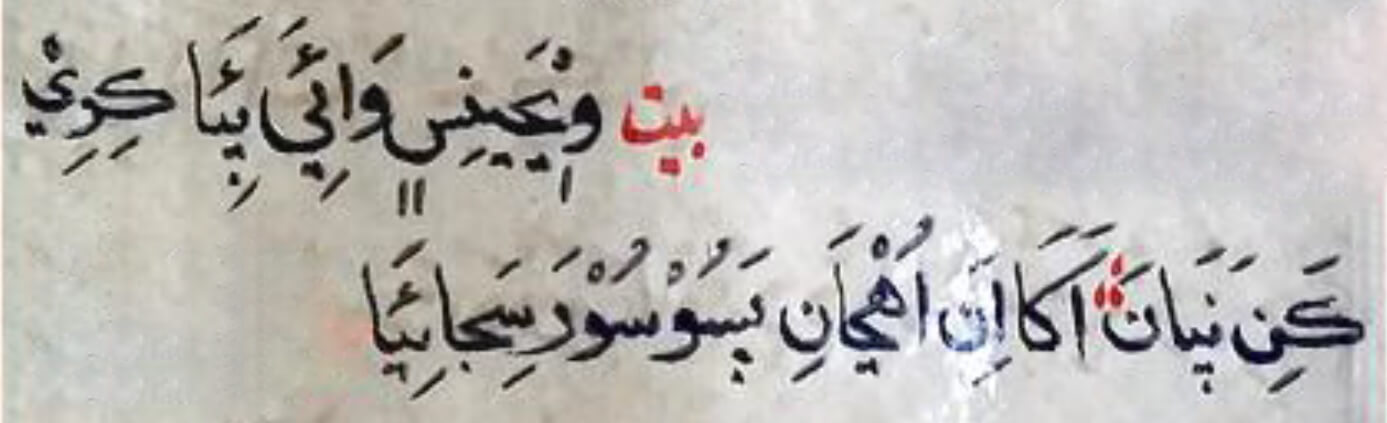 بيت وِڃَينِسِ وَائِيَ ٻِيَا ڪِرِيْ
ڪَنِ نَپَانَ اَڪَا اِنَ اُهْڃَانِ پَسُوْ سُوْرَ سِڃَائِيَا